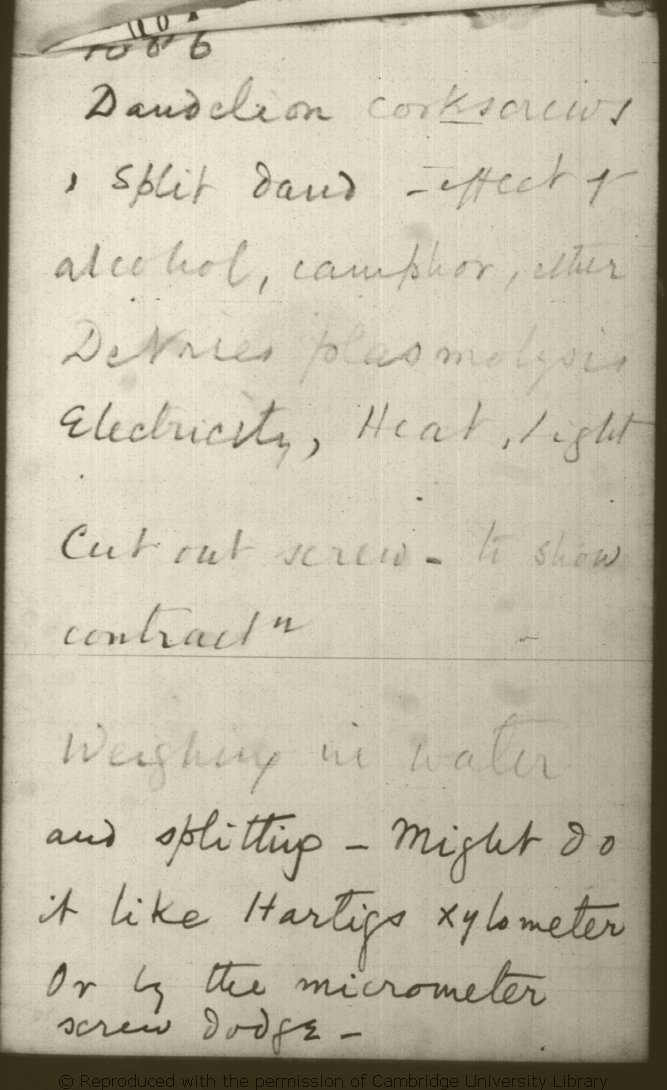 Dandelion corkscrews
, split dand – effect of
alcohol, camphor, ether
DeVries plasmolysis
Electricity, Heat, light
Cut out screw – to show
contractn
Weighing in water
and splitting – Might do
it like Hartigs xylometer
Or by the micrometer
screw dodge –
© Reproduced with the permission of Cambridge University Library